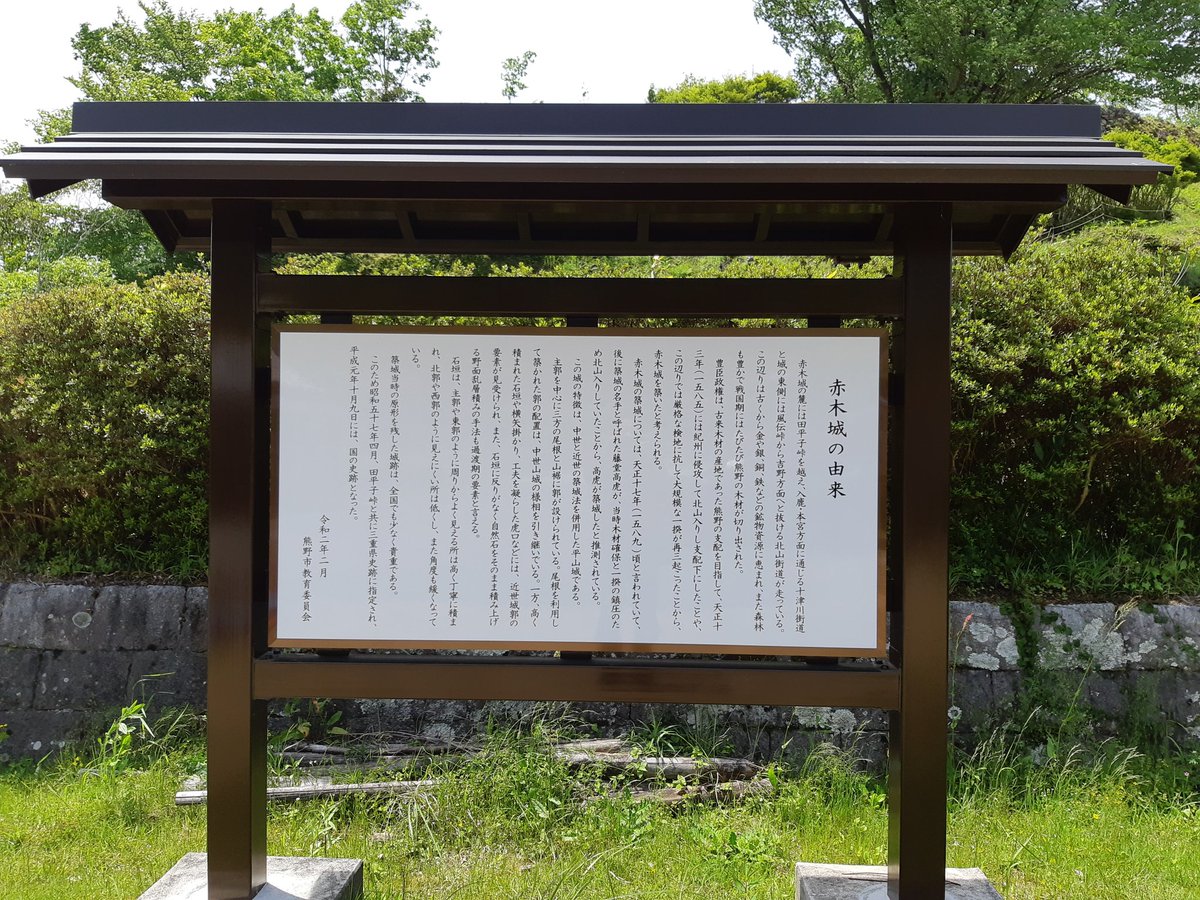 赤木城の由来
赤木城の麓には田平子峠を越え、入鹿・本宮方面に通じる十津川街道
と城の東側には風伝峠から吉野方面へと抜ける北山街道が走っている。
この辺りは古くから金や銀、銅、鉄などの鉱物資源に恵まれ、また森林
も豊かで戦国期にはたびたび熊野の木材が切り出された。
豊臣政権は、古来木材の産地であった熊野の支配を目指して、天正十
三年(一五八五)には紀州に侵攻して北山入りし支配下にしたことや、
この辺りでは厳格な検地に抗して大規模な一揆が再三起こったことから、
赤木城を築いたと考えられる。
赤木城の築城については、天正十七年(一五八九)頃と言われていて、
後に築城の名手と呼ばれた藤堂高虎が、当時木材確保と一揆の鎮圧のた
め北山入りしていたことから、高虎が築城したと推測されている。
この城の特徴は、中世と近世の築城法を併用した平山城である。
主郭を中心に三方の尾根と山裾に郭が設けられている。尾根を利用し
て築かれた郭の配置は、中世山城の様相を引き継いでいる。一方、高く
積まれた石垣や横矢掛かり、工夫を凝らした虎口などには、近世城郭の
要素が見受けられ、また、石垣に反りがなく自然石をそのまま積み上げ
る野面乱層積みの手法も過渡期の要素と言える。
石垣は、主郭や東郭のように周りからよく見える所は高く丁寧に積ま
れ、北郭や西郭のように見えにくい所は低くし、また角度も緩くなって
いる。
築城当時の原形を残した城跡は、全国でも少なく貴重である。
このため昭和五十七年四月、田平子峠と共に三重県史跡に指定され、
平成元年十月九日には、国の史跡となった。
令和二年二月
熊野市教育委員会